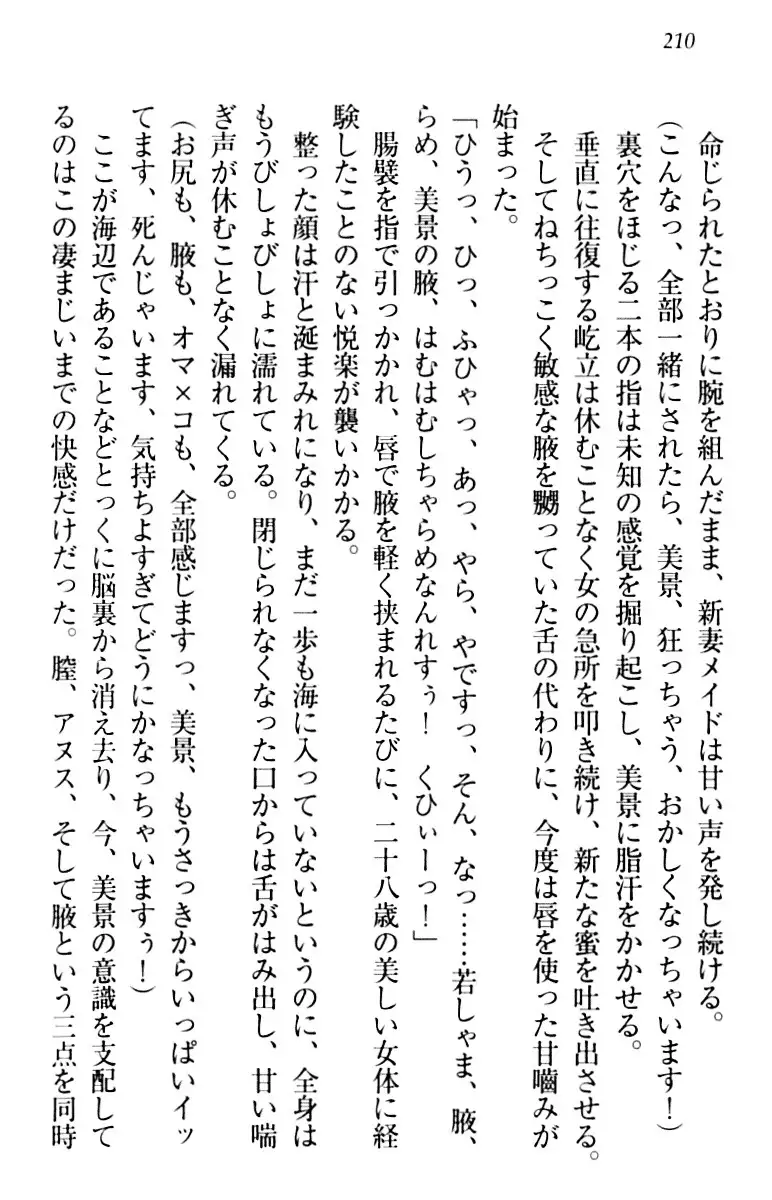 210
命じられたとおりに腕を組んだまま、新妻メイドは甘い声を発し続ける。
(こんなっ、全部一緒にされたら、美景、狂っちゃう、おかしくなっちゃいます!)
裏穴をほじる二本の指は未知の感覚を掘り起こし、美景に脂汗をかかせる。
垂直に往復する屹立は休むことなく女の急所を叩き続け、新たな蜜を吐き出させる。
そしてねちっこく敏感な腋を嬲っていた舌の代わりに、今度は唇を使った甘嚙みが
始まった。
「ひうっ、ひっ、ふひゃっ、あっ、やら、やですっ、そん、なっ……若しゃま、腋、
らめ、美景の腋、はむはむしちゃらめなんれすぅ! くひぃーっ!」
腸襞を指で引っかかれ、唇で腋を軽く挟まれるたびに、二十八歳の美しい女体に経
験したことのない悦楽が襲いかかる。
整った顔は汗と涎まみれになり、まだ一歩も海に入っていないというのに、全身は
もうびしょびしょに濡れている。閉じられなくなった口からは舌がはみ出し、甘い喘
ぎ声が休むことなく漏れてくる。
(お尻も、腋も、オマ×コも、全部感じますっ、美景、もうさっきからいっぱいイッ
てます、死んじゃいます、気持ちよすぎてどうにかなっちゃいますぅ!)
ここが海辺であることなどとっくに脳裏から消え去り、今、美景の意識を支配して
るのはこの凄まじいまでの快感だけだった。膣、アヌス、そして腋という三点を同時